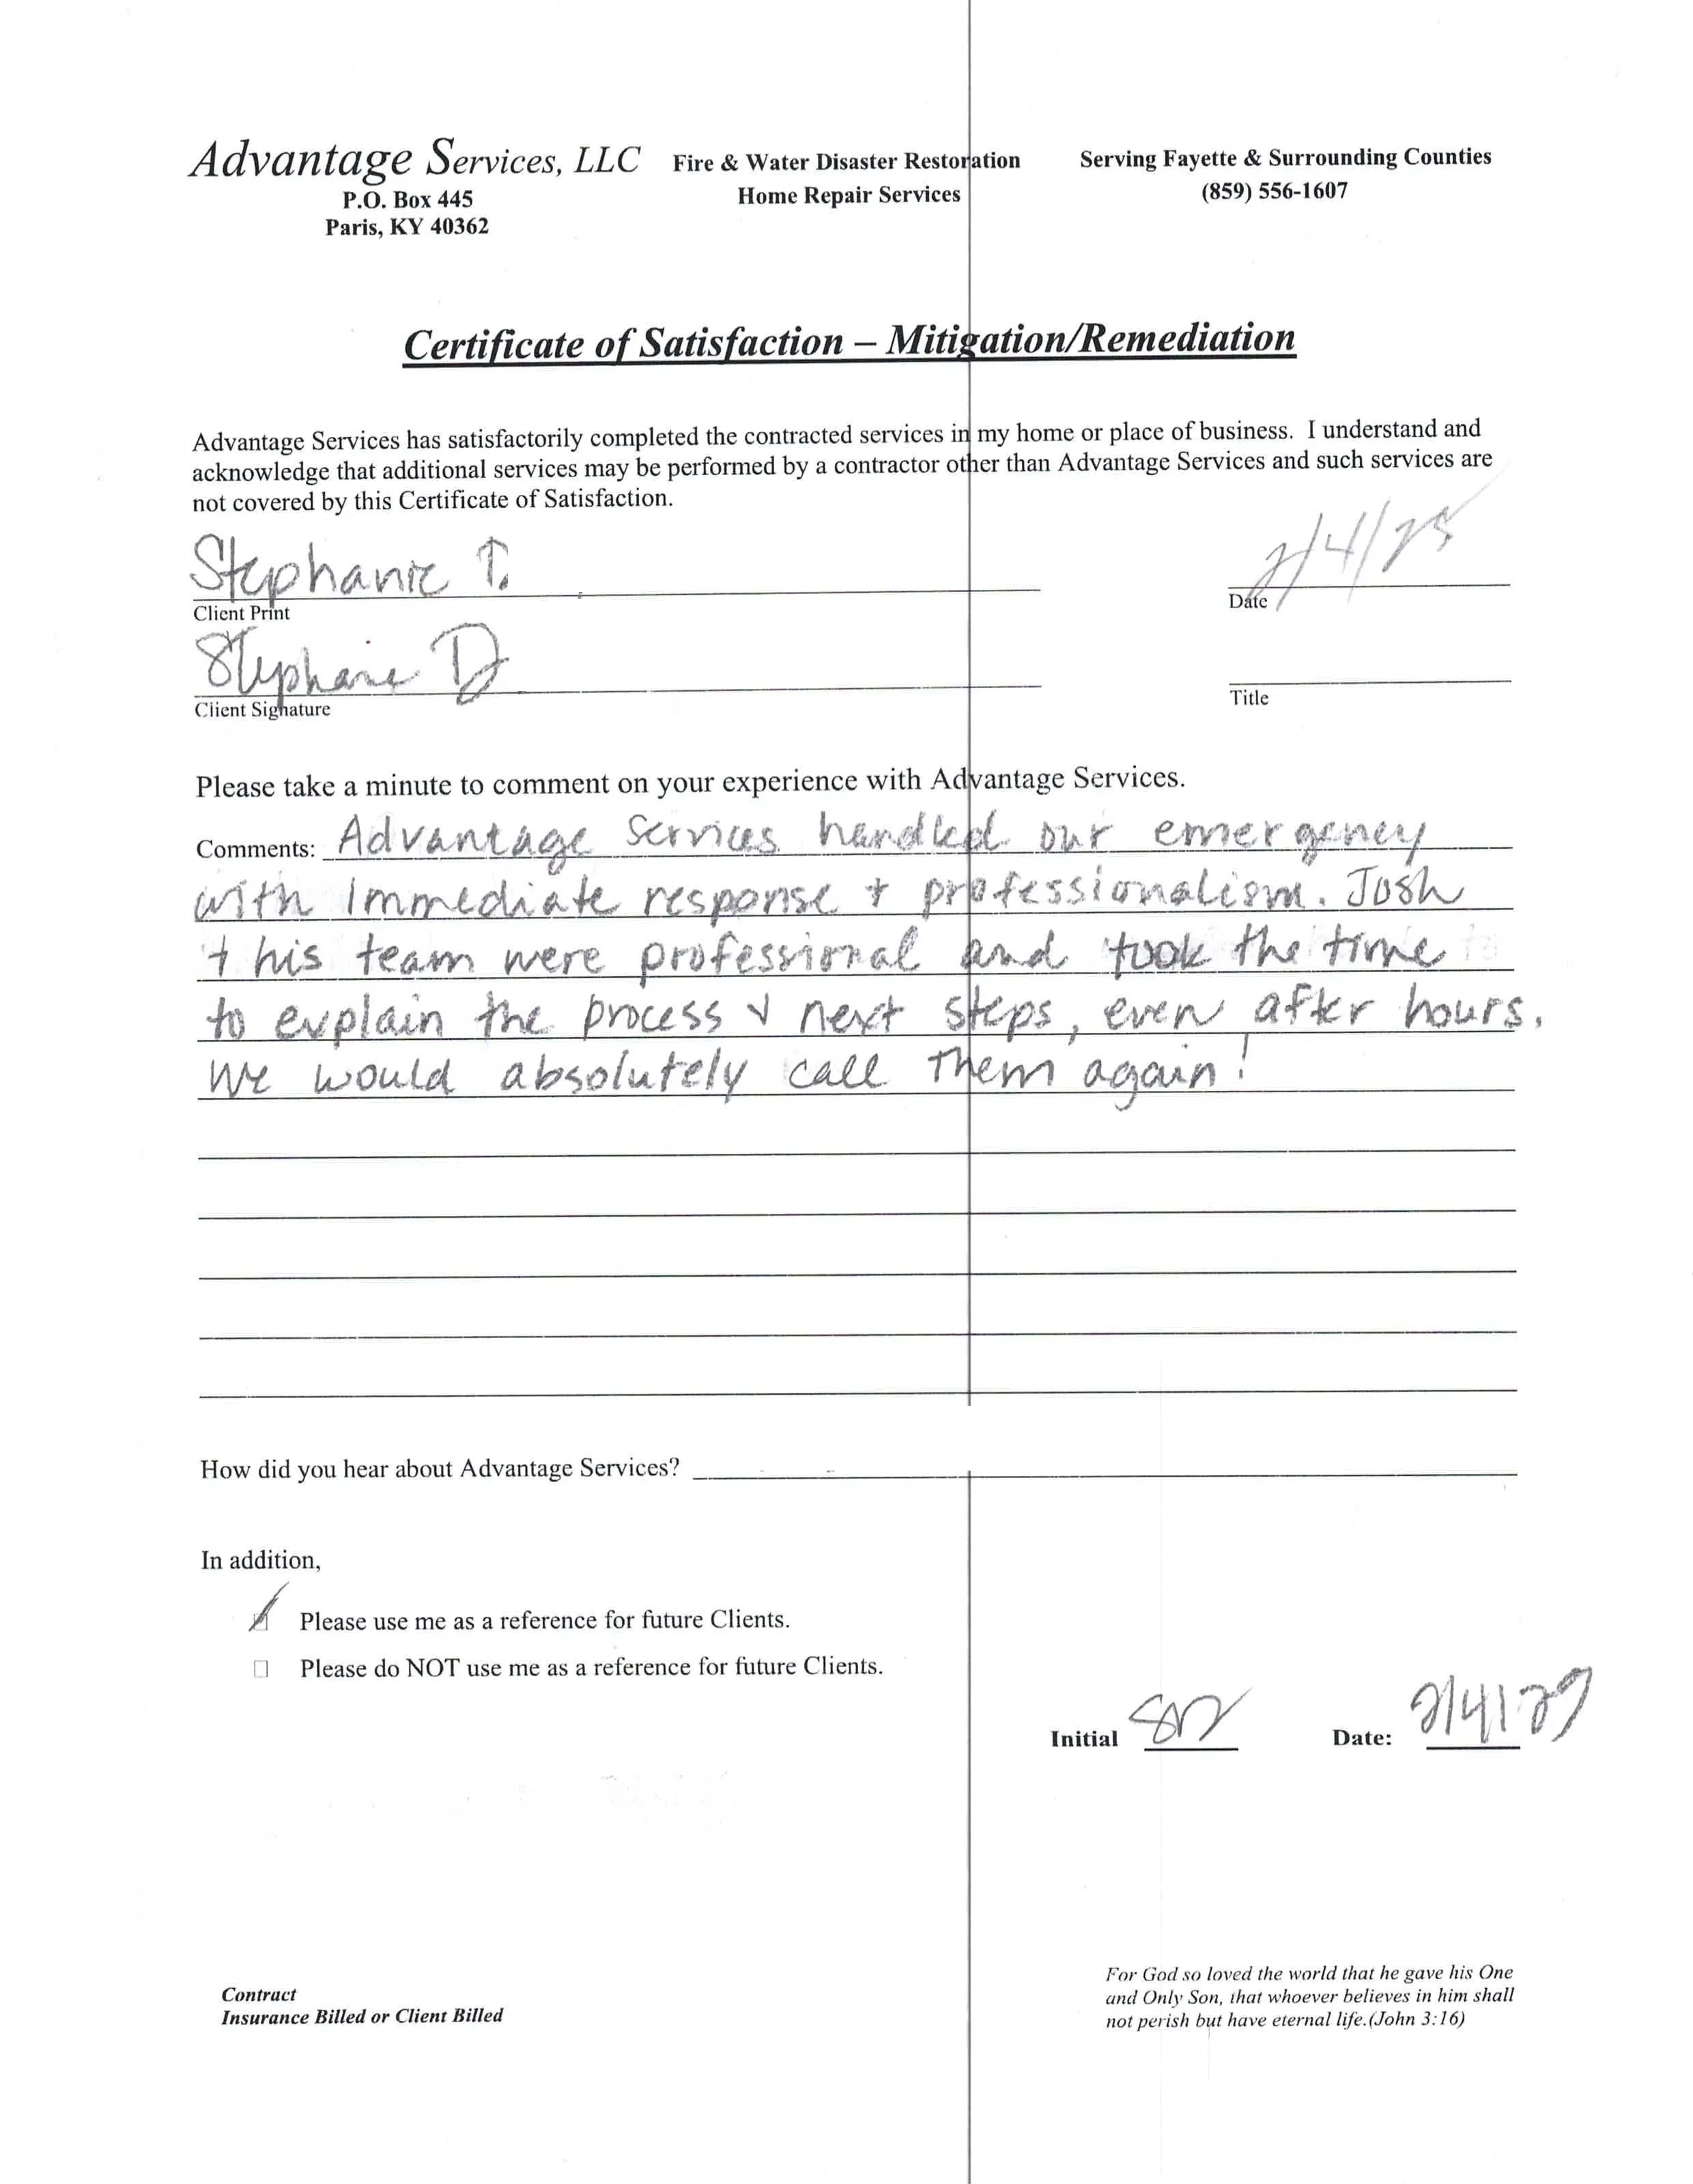 Advantage Services, LLC Fire & Water Disaster Restoration Serving Fayette & Surrounding Counties
P.O. Box 445 Home Repair Services (859) 556-1607
Paris, KY 40362
Certificate of Satisfaction – Mitigation/Remediation
Advantage Services has satisfactorily completed the contracted services in my home or place of business. I understand and
acknowledge that additional services may be performed by a contractor other than Advantage Services and such services are
not covered by this Certificate of Satisfaction.
Stephanie T. 2/4/25
Client Print Date
Stephanie
Client Signature Title
Please take a minute to comment on your experience with Advantage Services.
Comments: Advantage Services handled our emergency
with immediate response + professionalism. Josh
+ his team were professional and took the time
to explain the process + next steps, even after hours.
We would absolutely call them again!
How did you hear about Advantage Services?
In addition,
Please use me as a reference for future Clients.
Please do NOT use me as a reference for future Clients.
Initial Date: 2/4/
Contract
Insurance Billed or Client Billed
For God so loved the world that he gave his One
and Only Son, that whoever believes in him shall
not perish but have eternal life.(John 3:16)